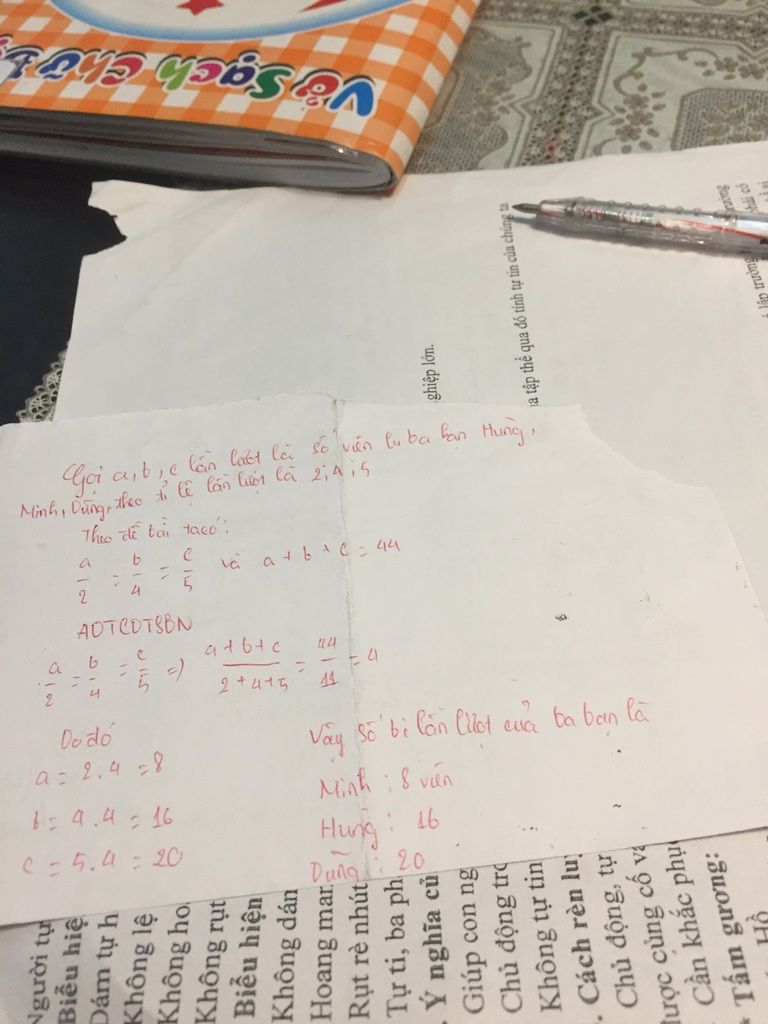 Vở Sạch Chữ Đ
ghiệp lớn.
a tập thể qua đó tính tự tin của chúng ta
lập trường
Gọi a, b, c lần lượt là số viên bi ba bạn Hưng,
Minh, Dũng, theo tỉ lệ lần lượt là 2; 4; 5
Theo đề bài ta có:
a/2 = b/4 = c/5 và a + b + c = 44
ADTCDTSBN
a/2 = b/4 = c/5 => a+b+c/2+4+5 = 44/11 = 4
Do đó
a = 2.4 = 8
b = 4.4 = 16
c = 5.4 = 20
Vậy số bi lần lượt của ba bạn là
Minh : 8 viên
Hưng : 16
Dũng : 20
Người tự
Biểu hiệ
Dám tự h
Không lệ
Không ho
Không rụt
Biểu hiện
Không dán
Hoang mar
Rụt rè nhút
Tự ti, ba ph
Ý nghĩa củ
Giúp con ng
Chủ động trc
Không tự tin
. Cách rèn lu
Chủ động, tự
ược củng cố và
Cần khắc phụ
* Tấm gương:
Hồ